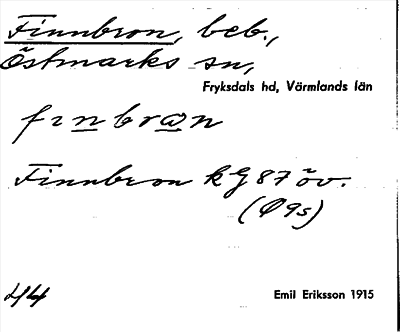 Finnbron, beb.,
Östmarks sn,
Fryksdals hd, Värmlands län
fınbrɷn
Finnbron kG 87 öv.
(Ø 9s)
44
Emil Eriksson 1915